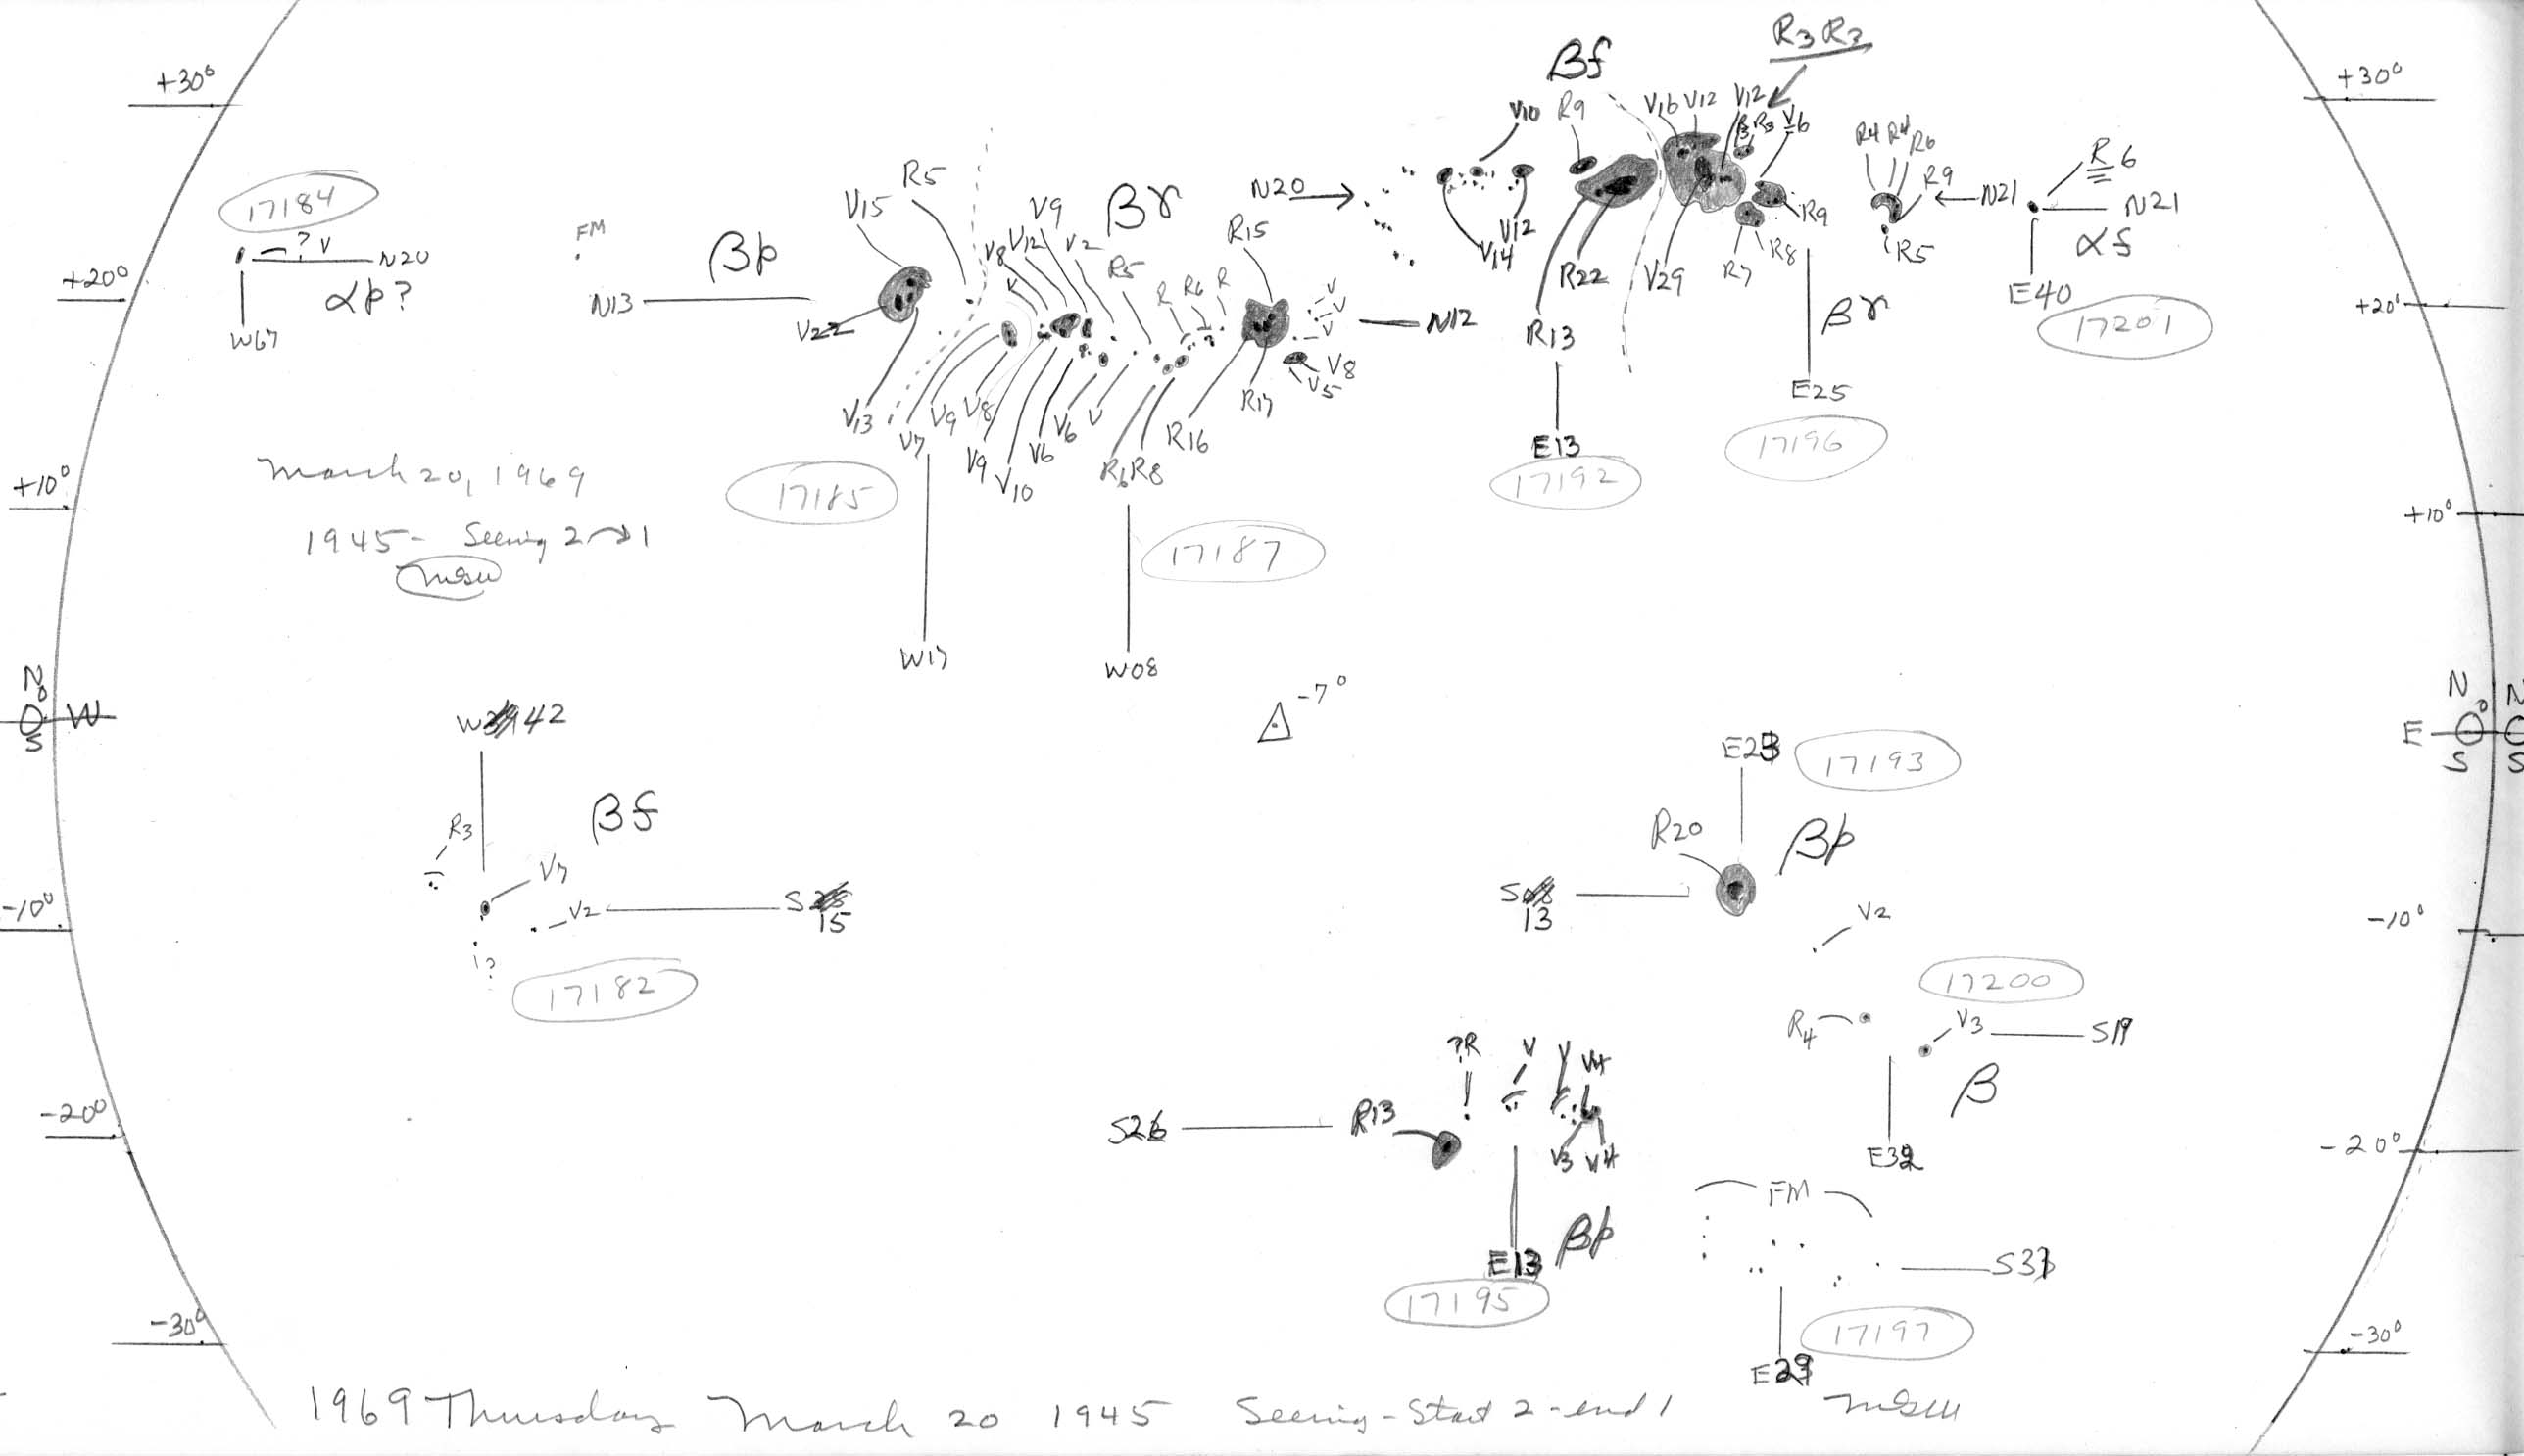 +30⁰
+30⁰
R3 R3
βf
V10
R9
V16 V12 V12
R3 R3 V6
R4 R4 R6
R9
R 6
17184
? V
N20
αp?
W67
FM
+20⁰
+20⁰
βp
N13
V15
R5
V22
V13
V7
V9
V8
V8 V12 V9 V2
V
R5
βγ
V9
V10
V6
V6
V
R R6 R
R15
R6 R8
R16
R17
V
V
V
V8
V5
N12
N20
V14
V12
R13
R22
V29
R7
R8
R9
βγ
E25
17196
E13
17192
N21
R5
N21
αf
E40
17201
17185
17187
W17
W08
+10⁰
+10⁰
March 20, 1969
1945- Seeing 2→1
msw
N
W
S
-7⁰
N
E
S
N
S
W 42
R3
βf
V7
V2
S
15
17182
E23
17193
R20
βp
S
13
V2
-10⁰
-10⁰
17200
R4
V3
S19
β
E32
?R
V
V
V4
S26
R13
V3 V4
E13
βp
17195
-20⁰
-20⁰
FM
S33
E29
17197
-30⁰
-30⁰
1969 Thursday March 20 1945 Seeing - Start 2 - end 1 msw